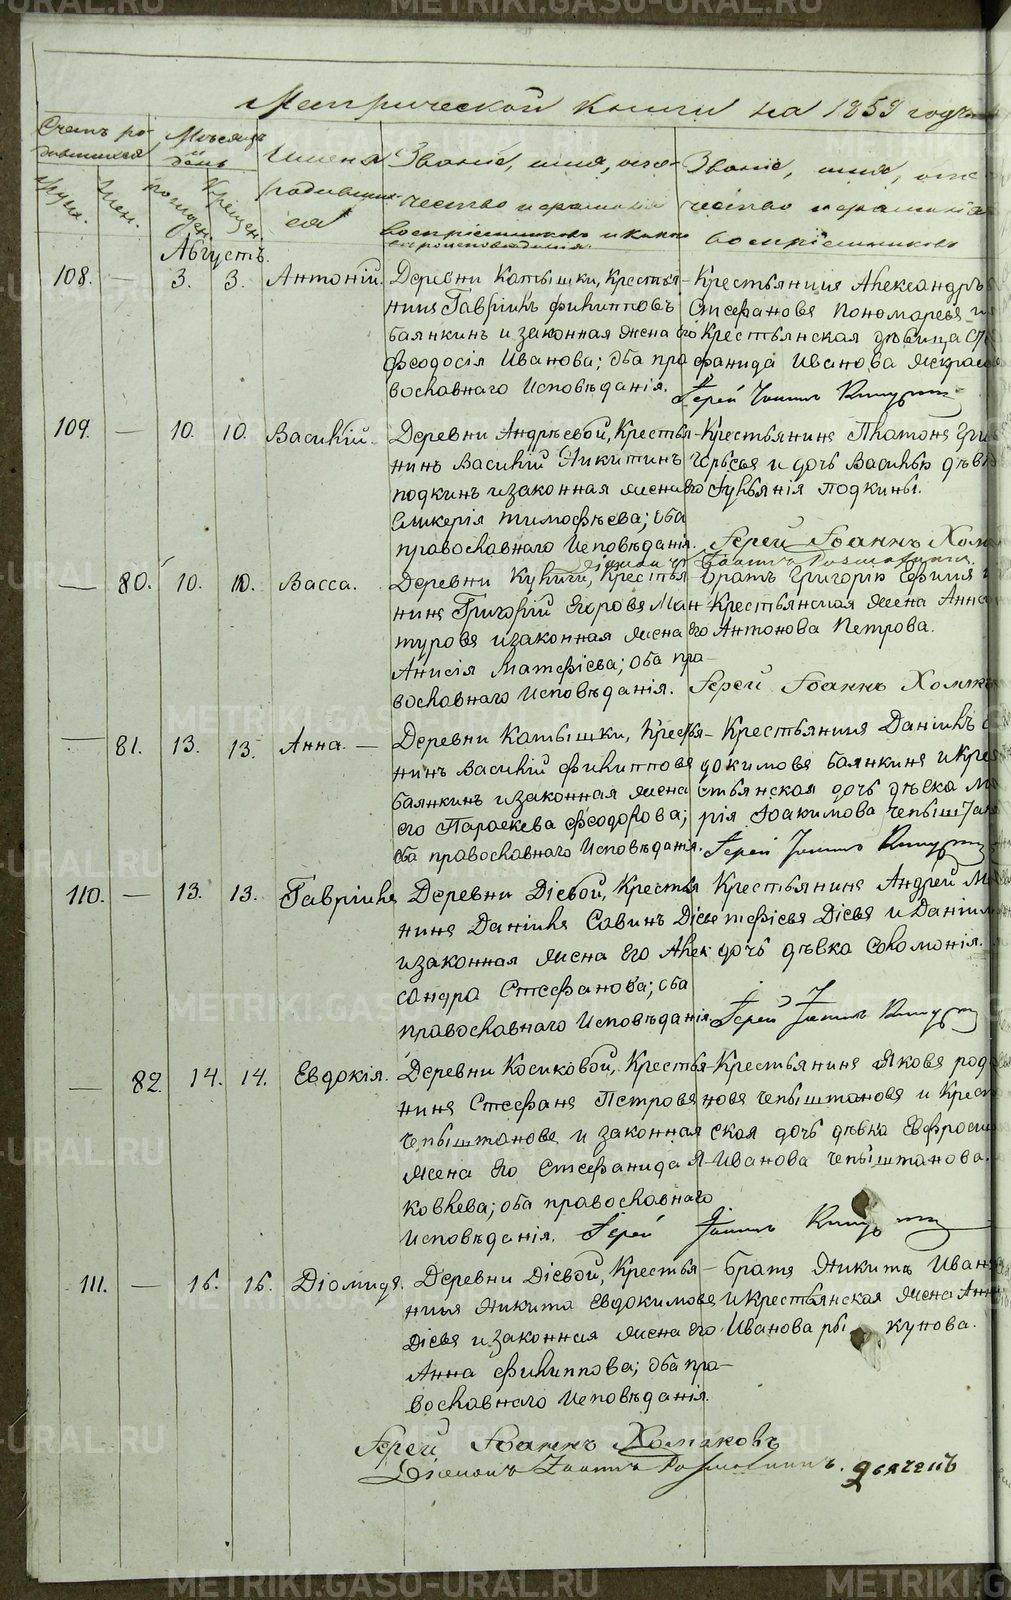 METRIKI.GASO-URAL.RU
Метрической книги на 1859 годъ
Счетъ родившихся
Мѣсяцъ и день
Имена родившихся
Званіе, имя, отечество и фамилія
воспріемниковъ
Муж.
Жен.
рожден.
крещен.
Августъ.
108. — 3. 3. Антоній.
Деревни Катышки, Крестья-
нинъ Гавріилъ Филипповъ
Баянкинъ и законная жена его
Феодосія Иванова; оба пра
вославнаго Исповѣданія.
Крестьянинъ Александръ
Стефановъ Пономаревъ и
Крестьянская дѣвица Сте
фанида Иванова
Іерей
109. — 10. 10. Василій.
Деревни Андрѣевой, Крестья-
нинъ Василій Никитинъ
Подкинъ и законная жена его
Гликерія Тимофѣева; оба
православнаго Исповѣданія.
Крестьянинъ Платонъ Гри
горьевъ и дочь Василья дѣвка
Лукьянія Подкины.
Іерей Іоаннъ Холм
— 80. 10. 10. Васса.
Деревни Кулиги, Крестья
нинъ Григорій Егоровъ Ман-
туровъ и законная жена его
Анисія Матфіева; оба пра-
вославнаго Исповѣданія.
братъ Григорію Ефимъ и
Крестьянская жена Анна
Антонова Петрова.
Іерей Іоаннъ Холмак
— 81. 13. 13. Анна. —
Деревни Катышки, Крестья-
нинъ Василій Филипповъ
Баянкинъ и законная жена
его Параскева Феодорова;
оба православнаго Исповѣданія.
Крестьянинъ Даніилъ
докимовъ Баянкинъ и Кре
стьянская дочь дѣвка Ма
рія Іоакимова Чепыштан
Іерей
110. — 13. 13. Гавріилъ
Деревни Діевой, Крестья
нинъ Даніилъ Савинъ Діевъ
и законная жена его Алек
сандра Стефанова; оба
православнаго Исповѣданія
Крестьянинъ Андрей Ма
тфіевъ Діевъ и Даніила
дочь дѣвка Соломонія.
Іерей
— 82. 14. 14. Евдокія.
Деревни Косиковой, Крестья
нинъ Стефанъ Петровъ
Чепыштановъ и законная
жена его Стефанида Я-
ковлева; оба православнаго
Исповѣданія.
Крестьянинъ Яковъ Роді
новъ Чепыштановъ и Крест
ская дочь дѣвка Евфроси
Иванова Чепыштанова.
Іерей
111. — 16. 16. Діомидъ.
Деревни Діевой, Крестья-
нинъ Никита Евдокимовъ
Діевъ и законная жена его
Анна Филиппова; оба пра-
вославнаго Исповѣданія.
братъ Никитъ Иван
и Крестьянская жена Анн
Иванова Рыкунова.
Іерей Іоаннъ Холмаковъ
дьячекъ